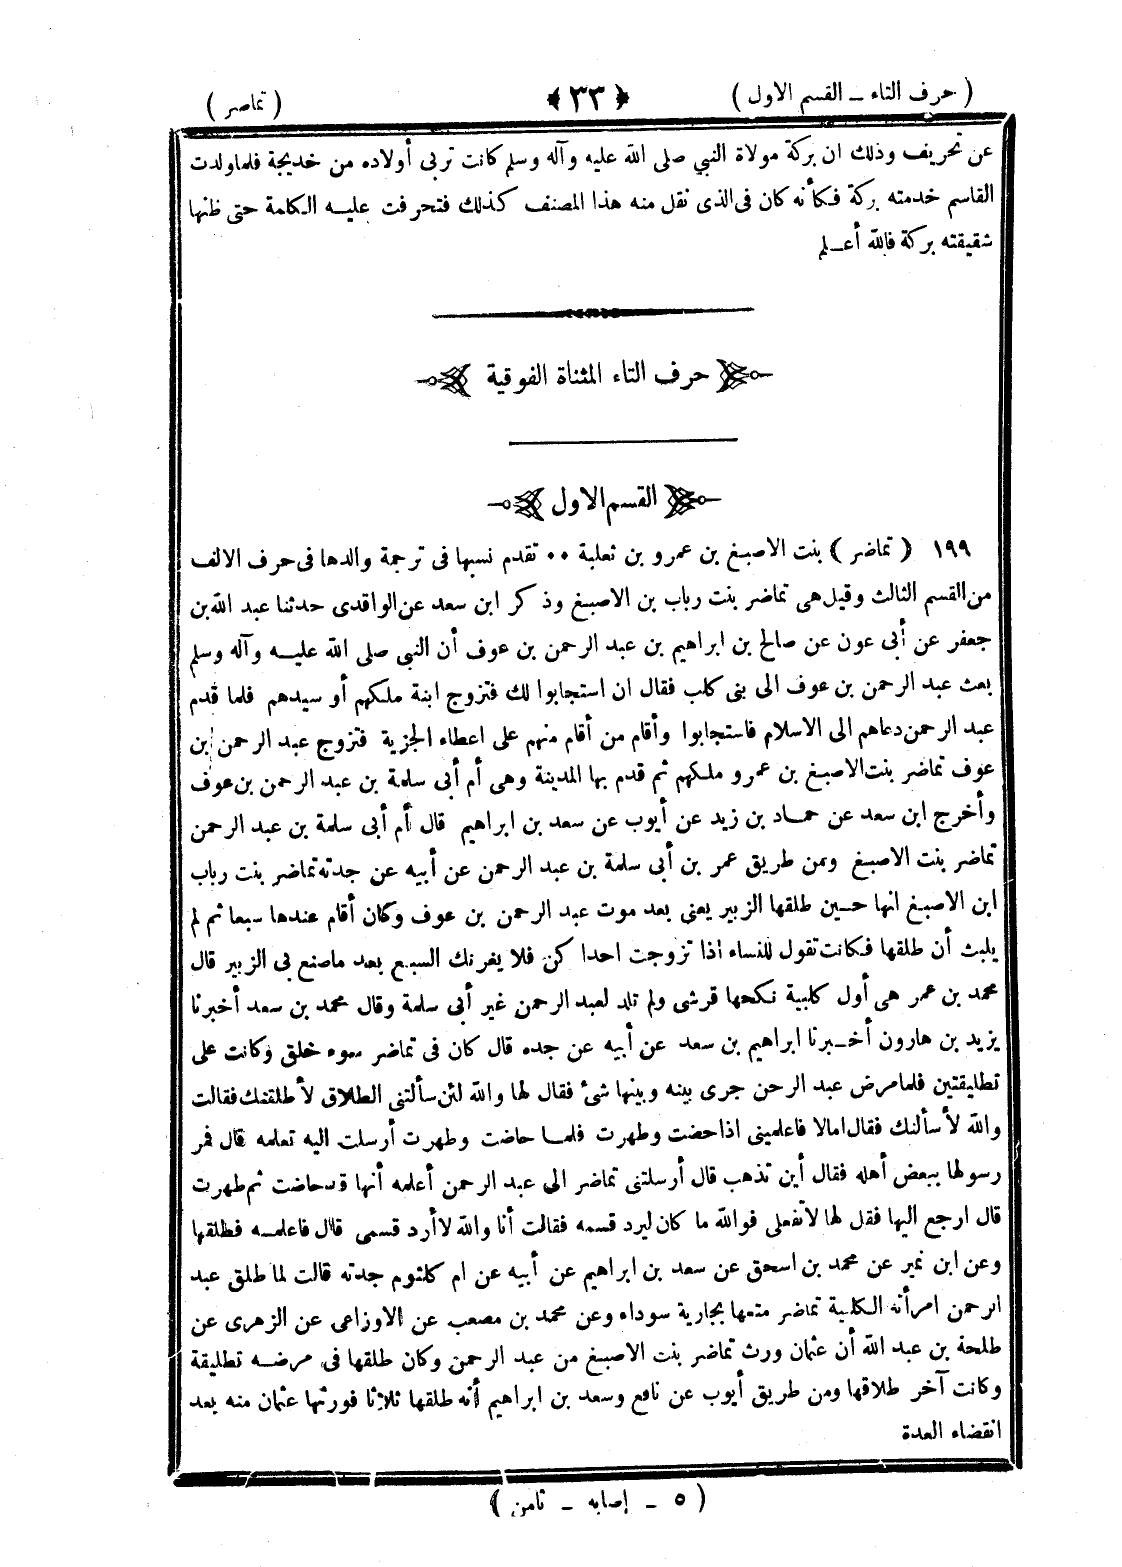 ( حرف التاء ـ القسم الاول ) ﴿ ٣٣ ﴾ ( تماصر )
عن تحريف وذلك ان بركة مولاة النبي صلى الله عليه وآله وسلم كانت تربى أولاده من خديجة فلماولدت
القاسم خدمته بركة فكأنه كان فى الذى نقل منه هذا المصنف كذلك فتحرفت عليه الكامة حتى ظنها
شقيقته بركة فالله أعـلم
حرف التاء المثناة الفوقية
القسم الاول
١٩٩ ( تماضر ) بنت الاصبغ بن عمرو بن ثعلبة ٠٠ تقدم نسبها فى ترجمة والدها فى حرف الالف
من القسم الثالث وقيل هى تماضر بنت رباب بن الاصبغ وذكر ابن سعد عن الواقدى حدثنا عبد الله بن
جعفر عن أبى عون عن صالح بن ابراهيم بن عبد الرحمن بن عوف أن النبي صلى الله عليه وآله وسلم
بعث عبد الرحمن بن عوف الى بنى كلب فقال ان استجابوا لك فتزوج ابنة ملكهم أو سيدهم فلما قدم
عبد الرحمن دعاهم الى الاسلام فاستجابوا وأقام من أقام منهم على اعطاء الجزية فتزوج عبد الرحمن بن
عوف تماضر بنت الاصبغ بن عمرو ملكهم ثم قدم بها المدينة وهى أم أبى سلمة بن عبد الرحمن بن عوف
وأخرج ابن سعد عن حمـاد بن زيد عن أيوب عن سعد بن ابراهيم قال أم أبى سلمة بن عبد الرحمن
تماضر بنت الاصبغ ومن طريق عمر بن أبى سلمة بن عبد الرحمن عن أبيه عن جدته تماضر بنت رباب
ابن الاصبغ انها حـين طلقها الزبير يعنى بعد موت عبد الرحمن بن عوف وكان أقام عندها سبعا ثم لم
يلبث أن طلقها فكانت تقول للنساء اذا تزوجت احدا كن فلا يغرنك السبع بعد ماصنع بى الزبير قال
محمد بن عمر هى أول كلبية نكحها قرشى ولم تلد لعبد الرحمن غير أبى سلمة وقال محمد بن سعد أخبرنا
يزيد بن هارون أخـبرنا ابراهيم بن سعد عن أبيه عن جده قال كان فى تماضر سوء خلق وكانت على
تطليقتين فلمامرض عبد الرحن جرى بينه وبينها شئ فقال لها والله لئن سألتنى الطلاق لأطلقنك فقالت
والله لأسألنك فقال امالا فاعلمينى اذا حضت وطهرت فلمـا حاضت وطهرت أرسلت اليه تعلمه قال فمر
رسولها ببعض أهله فقال أين تذهب قال أرسلتنى تماضر الى عبد الرحمن أعلمه أنها قد حاضت ثم طهرت
قال ارجع اليها فقل لها لاتفعلى فوالله ما كان ليرد قسمه فقالت أنا والله لاأرد قسمى قال فاعلمـه فطلقها
وعن ابن نمير عن محمد بن اسحق عن سعد بن ابراهيم عن أبيه عن ام كلثوم جدته قالت لما طلق عبد
الرحمن امرأته الكلبية تماضر متعها بجارية سوداء وعن محمد بن مصعب عن الاوزاعى عن الزهرى عن
طلحة بن عبد الله أن عثمان ورث تماضر بنت الاصبغ من عبد الرحمن وكان طلقها فى مرضه تطليقة
وكانت آخر طلاقها ومن طريق أيوب عن نافع وسعد بن ابراهيم أنه طلقها ثلاثا فورثها عثمان منه بعد
انقضاء العدة
( ٥ ـ إصابه ـ ثامن )